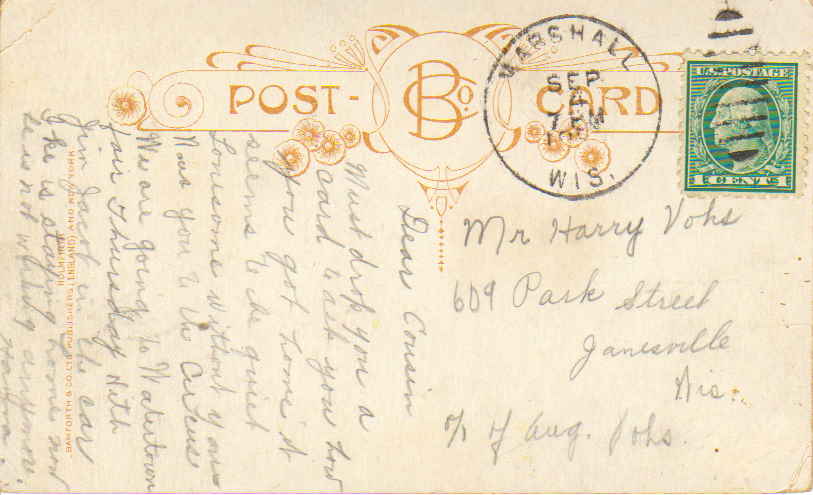 POST-
BCo.
CARD
MARSHALL
SEP
4
7 PM
WIS.
U.S. POSTAGE
Dear Cousin
Must drop you a
card to ask you how
you got home it
seems to be quiet
Lonesome without you
Was you to the Circus
We are going to Watertown
fair Thursday with
Jim Jacob in the car
he is staying home now
he is not working anymore.
Mr Harry Vohs
609 Park Street
Janesville
Wis.
c/o of Aug. Vohs.
BAMFORTH & CO. LTD PUBLISHERS (ENGLAND) AND NEW YORK